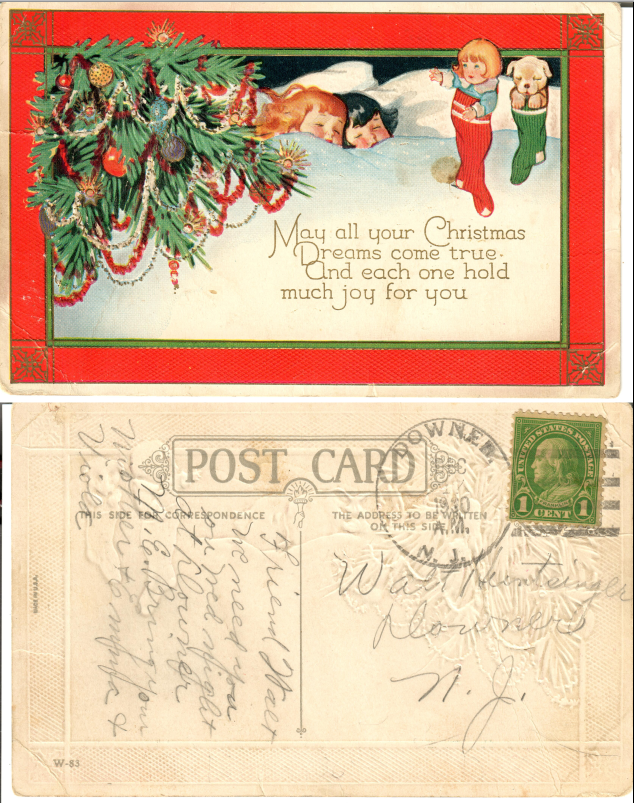 May all your Christmas
Dreams come true.
And each one hold
much joy for you
POST CARD
THIS SIDE FOR CORRESPONDENCE
THE ADDRESS TO BE WRITTEN
ON THIS SIDE
DOWNER
A.M.
N. J.
UNITED STATES POSTAGE
FRANKLIN
1 CENT 1
Friend Walt
We need you
for wed night
at Downer
M.E. Bring your
Walt
Downers
N. J.
MADE IN U.S.A.
W-83